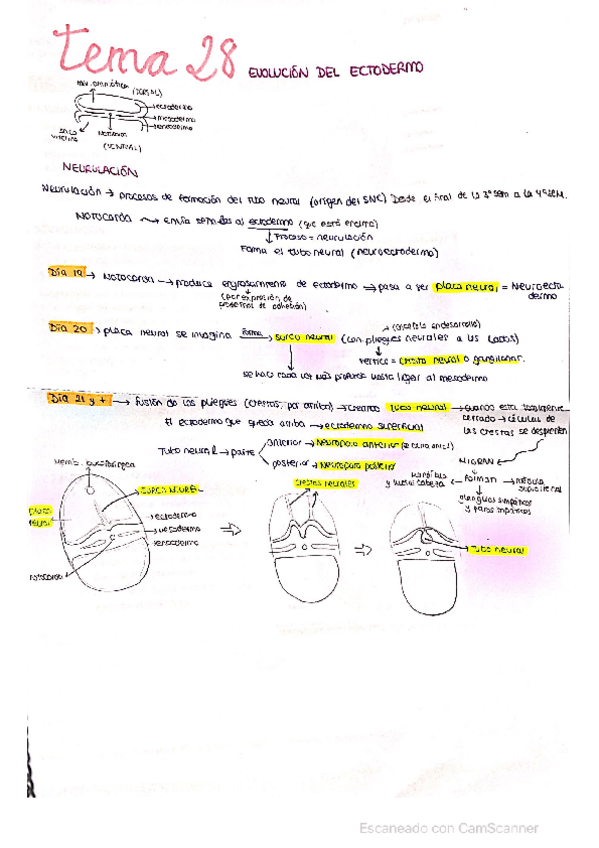 tema 28 EVOLUCIÓN DEL ECTODERMO
(DORSAL)
ectodermo
mesodermo
endodermo
Notocorda
(VENTRAL)
NEURULACIÓN
Neurulación → procesos de formación del tubo neural (origen del SNC) Desde el final de la 3ª sem a la 4ª SEM.
NOTOCORDA → envía señales al ectodermo (que está encima)
↓ Proceso = neurulación
Forma el tubo neural (neuroectodermo)
Día 19 → NOTOCORDA → produce engrosamiento de ectodermo → pasa a ser placa neural = Neuroecto-
dermo
(por expresión de
proteínas de adhesión)
→ cresta en desarrollo)
Día 20 → placa neural se imagina forma → surco neural (con pliegues neurales a los lados)
vértice = cresta neural o ganglionar.
se hace cada vez más profundo hasta llegar al mesodermo
Día 21 y + → fusión de los pliegues (crestas, por arriba) → creamos tubo neural → cuando está
cerrado → células de
las crestas se desprenden
El ectodermo que queda arriba → ectodermo superficial
Tubo neural → parte
anterior → Neuroporo anterior
posterior → Neuroporo posterior
MIGRAN
FORMAN → médula
suprarrenal
y cabeza
ganglios simpáticos
y parasimpáticos
Memb. bucofaríngea
SURCO NEURAL
placa
neural
→ ectodermo
→ mesodermo
endodermo
notocorda
crestas neurales
tubo neural
Escaneado con CamScanner